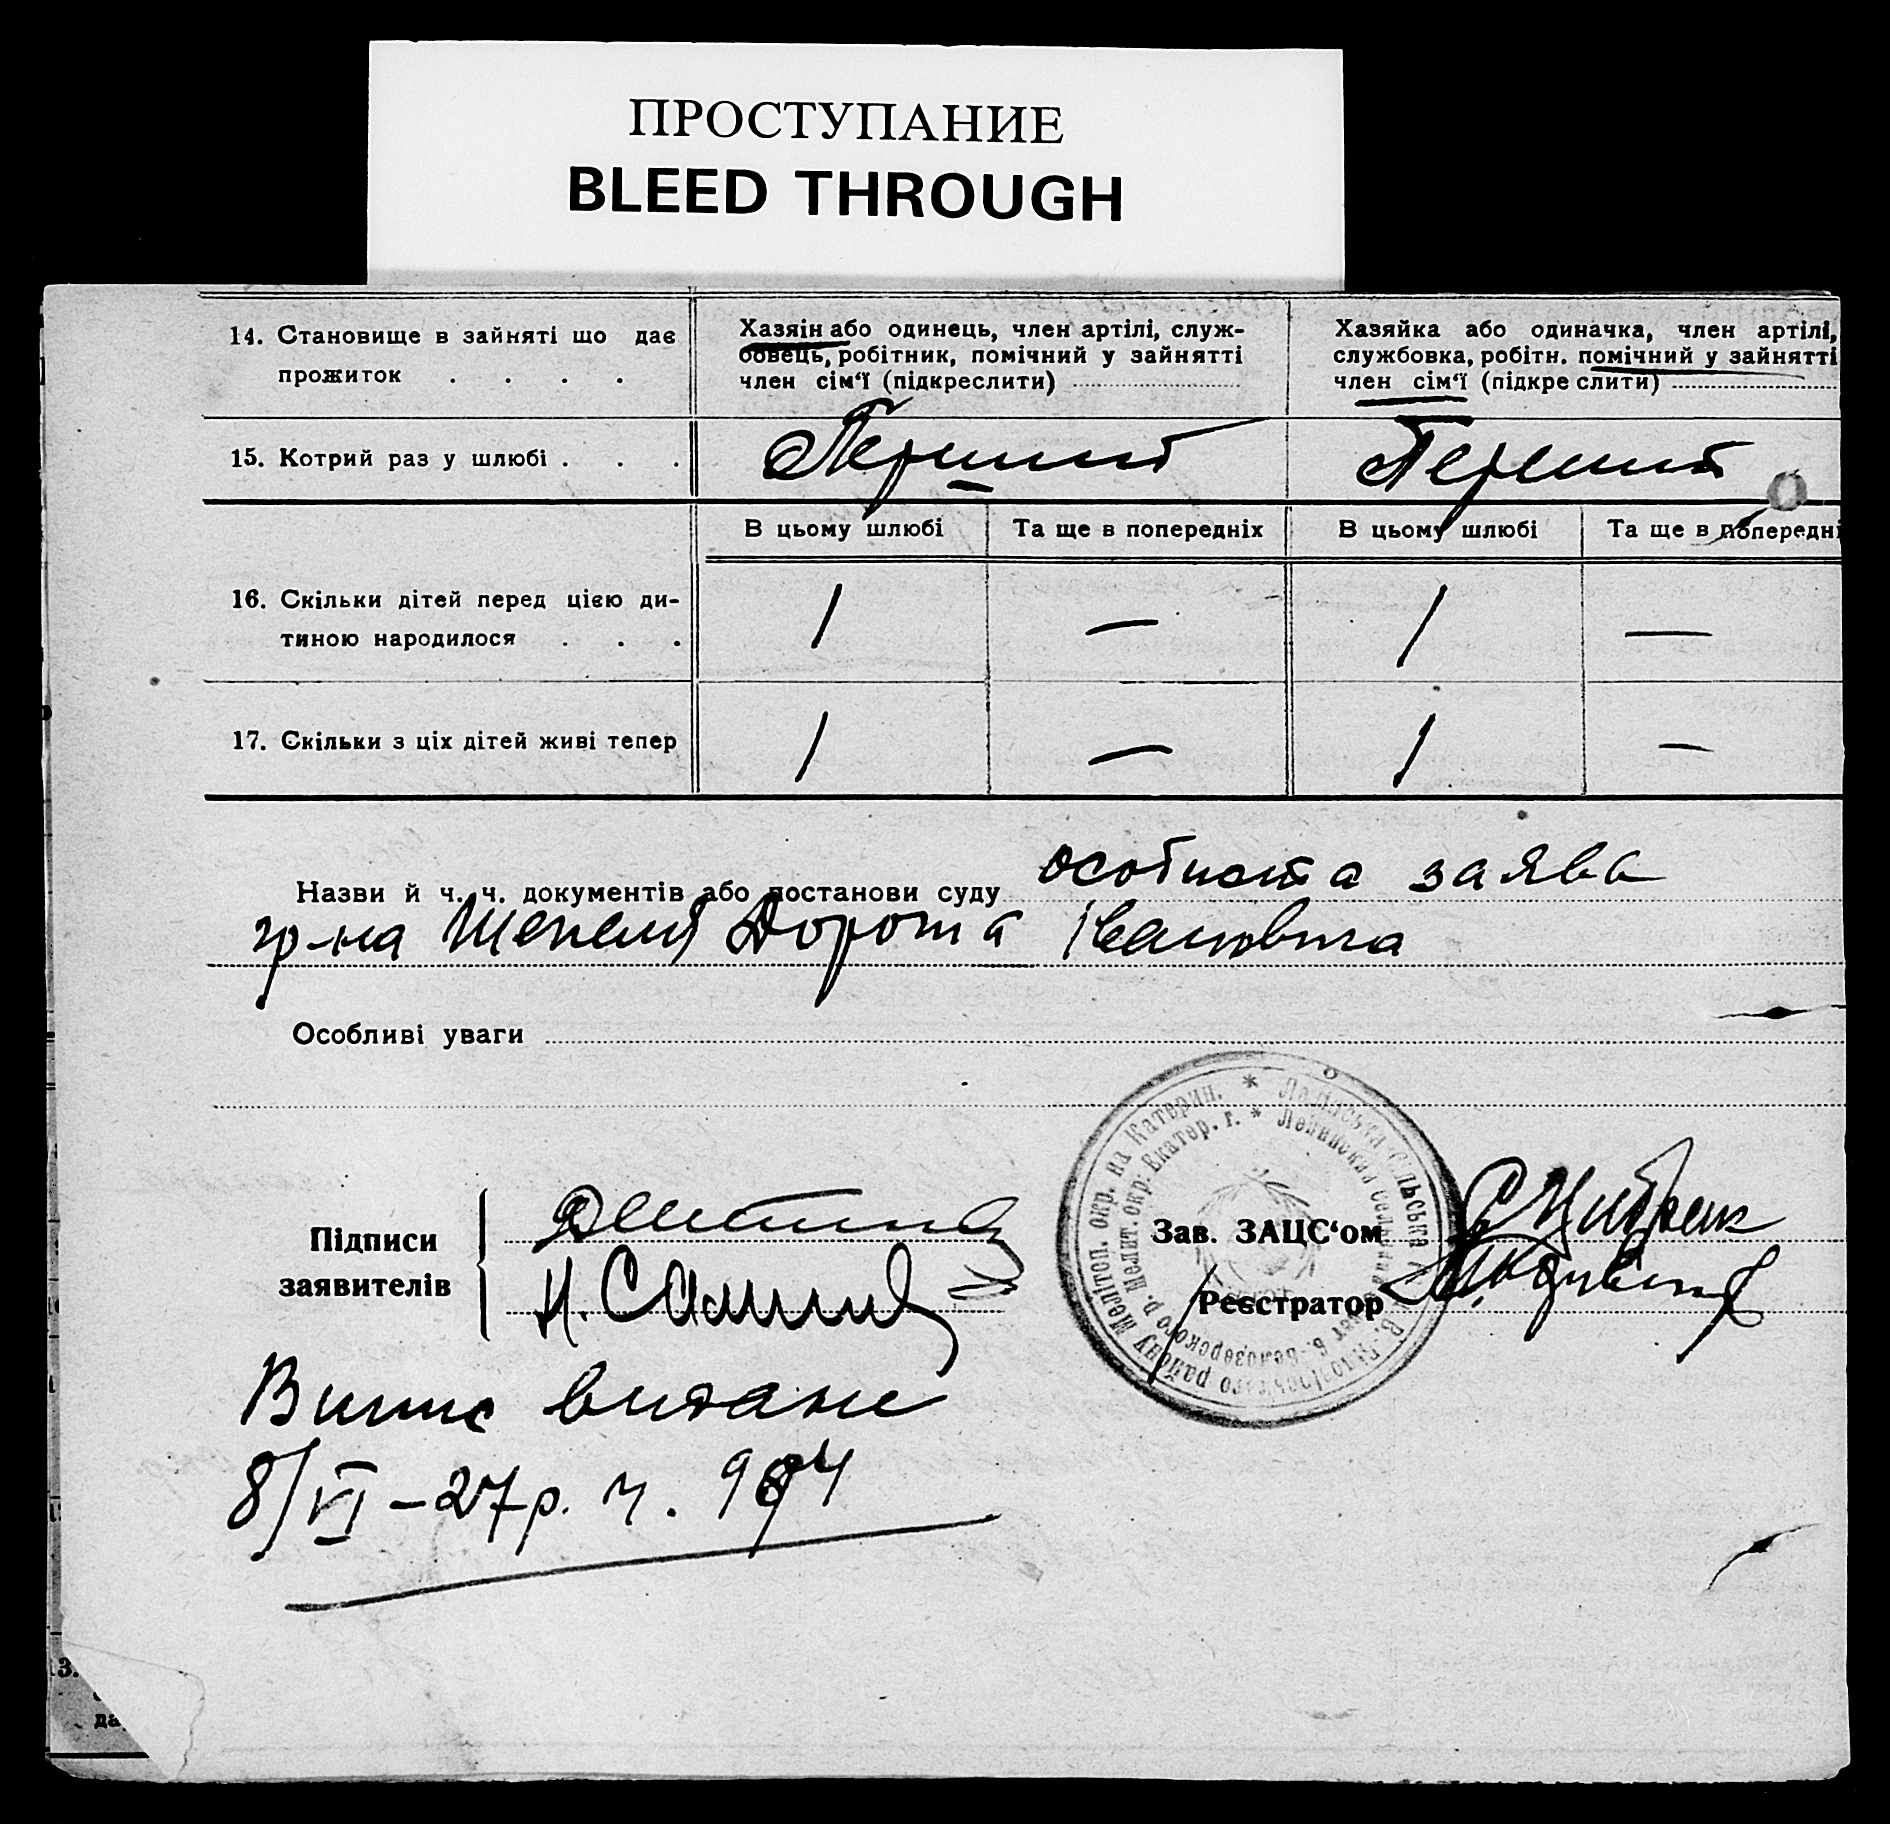 ПРОСТУПАНИЕ
BLEED THROUGH
14. Становище в зайняті що дає
прожиток . . . .
Хазяїн або одинець, член артілі, служ-
бовець, робітник, помічний у зайнятті
член сім‘ї (підкреслити)
Хазяйка або одиначка, член артілі,
службовка, робітн. помічний у зайнятті
член сім‘ї (підкре слити)
15. Котрий раз у шлюбі . . .
Перший
Перший
В цьому шлюбі
Та ще в попередніх
В цьому шлюбі
Та ще в попередні
16. Скільки дітей перед цією ди-
тиною народилося . . .
1 — 1 —
17. Скільки з ціх дітей живі тепер
1 — 1 —
Назви й ч. ч. документів або постанови суду особиста заява
гр-на Шепеля Івановича
Особливі уваги
Підписи
заявителів
Зав. ЗАЦС‘ом
Реєстратор
Мелітоп. окр. на Катерин.
Мелит. окр. Екатер. г.
Випис видане
8/VI – 27 р. ч.
3.